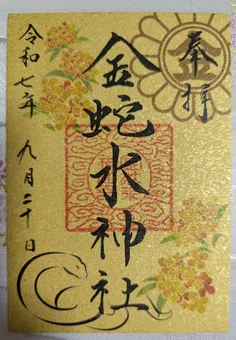 奉拝
金蛇水神社
令和七年 九月二十日